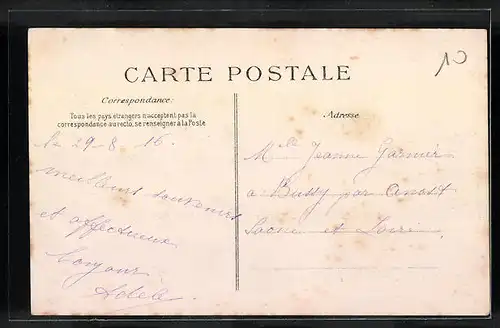 10
CARTE POSTALE
Correspondance:
Tous les pays étrangers n'acceptent pas la
correspondance au recto, se renseigner à la Poste
Le 29-8 16.
meilleurs souvenirs
et affectueux
bonjour
Adèle
Adresse
Mlle Jeanne Garnier
à Bussy par Anost
Saône et Loire.